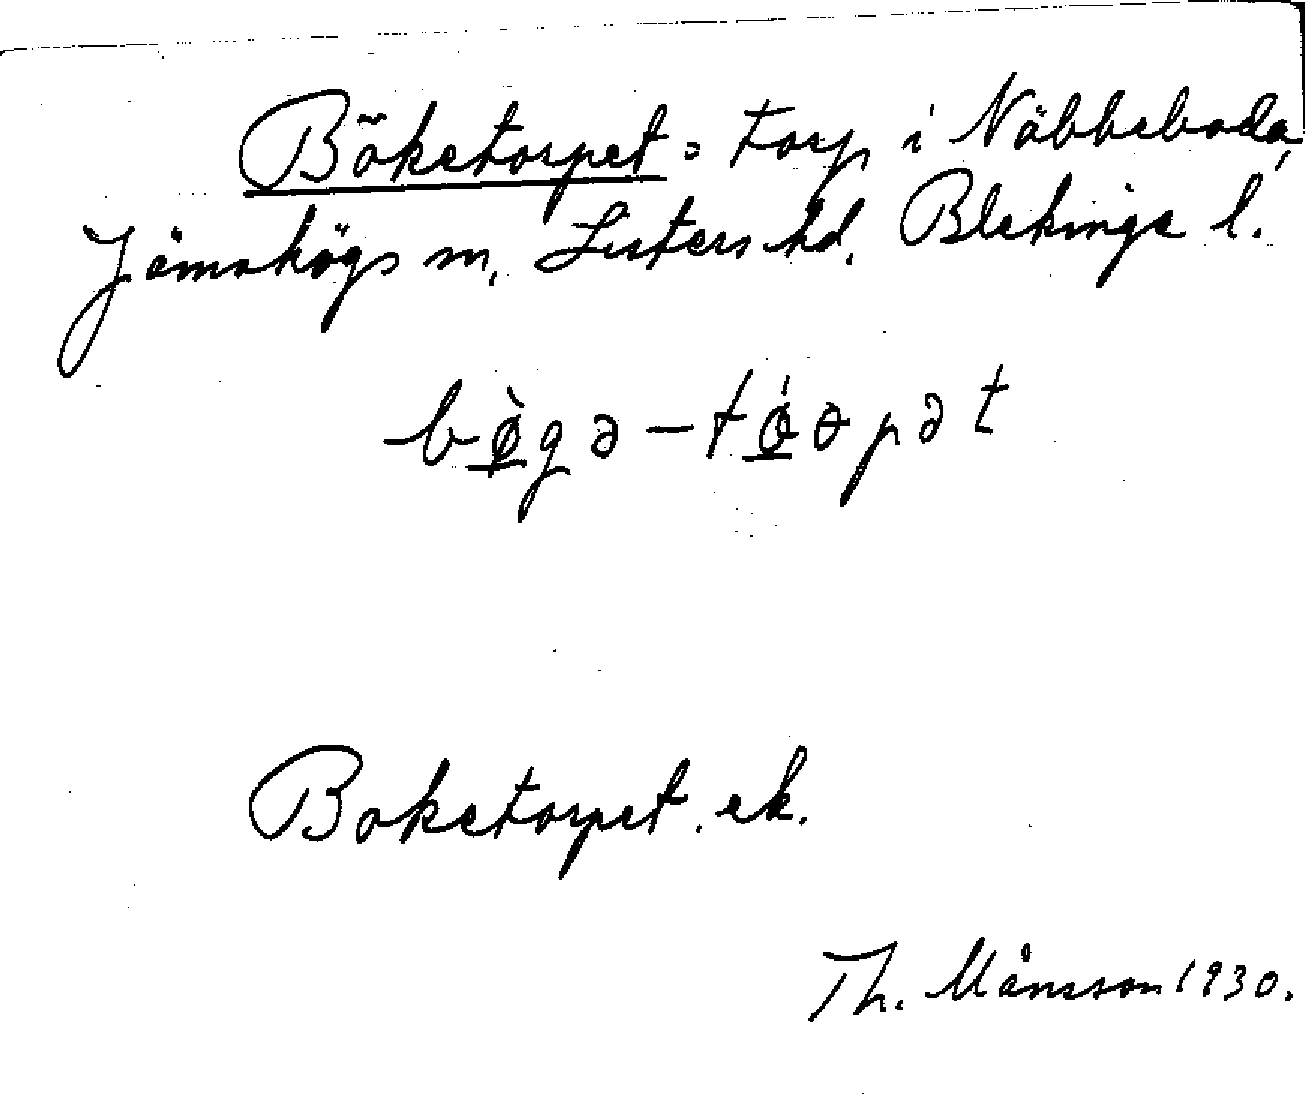 Böketorpet: torp i Näbbeboda,
Jämshögs sn, Listers hd, Blekinge l.
bø̀gə-tǿəpət
Boketorpet. ek.
Th. Månsson 1930.